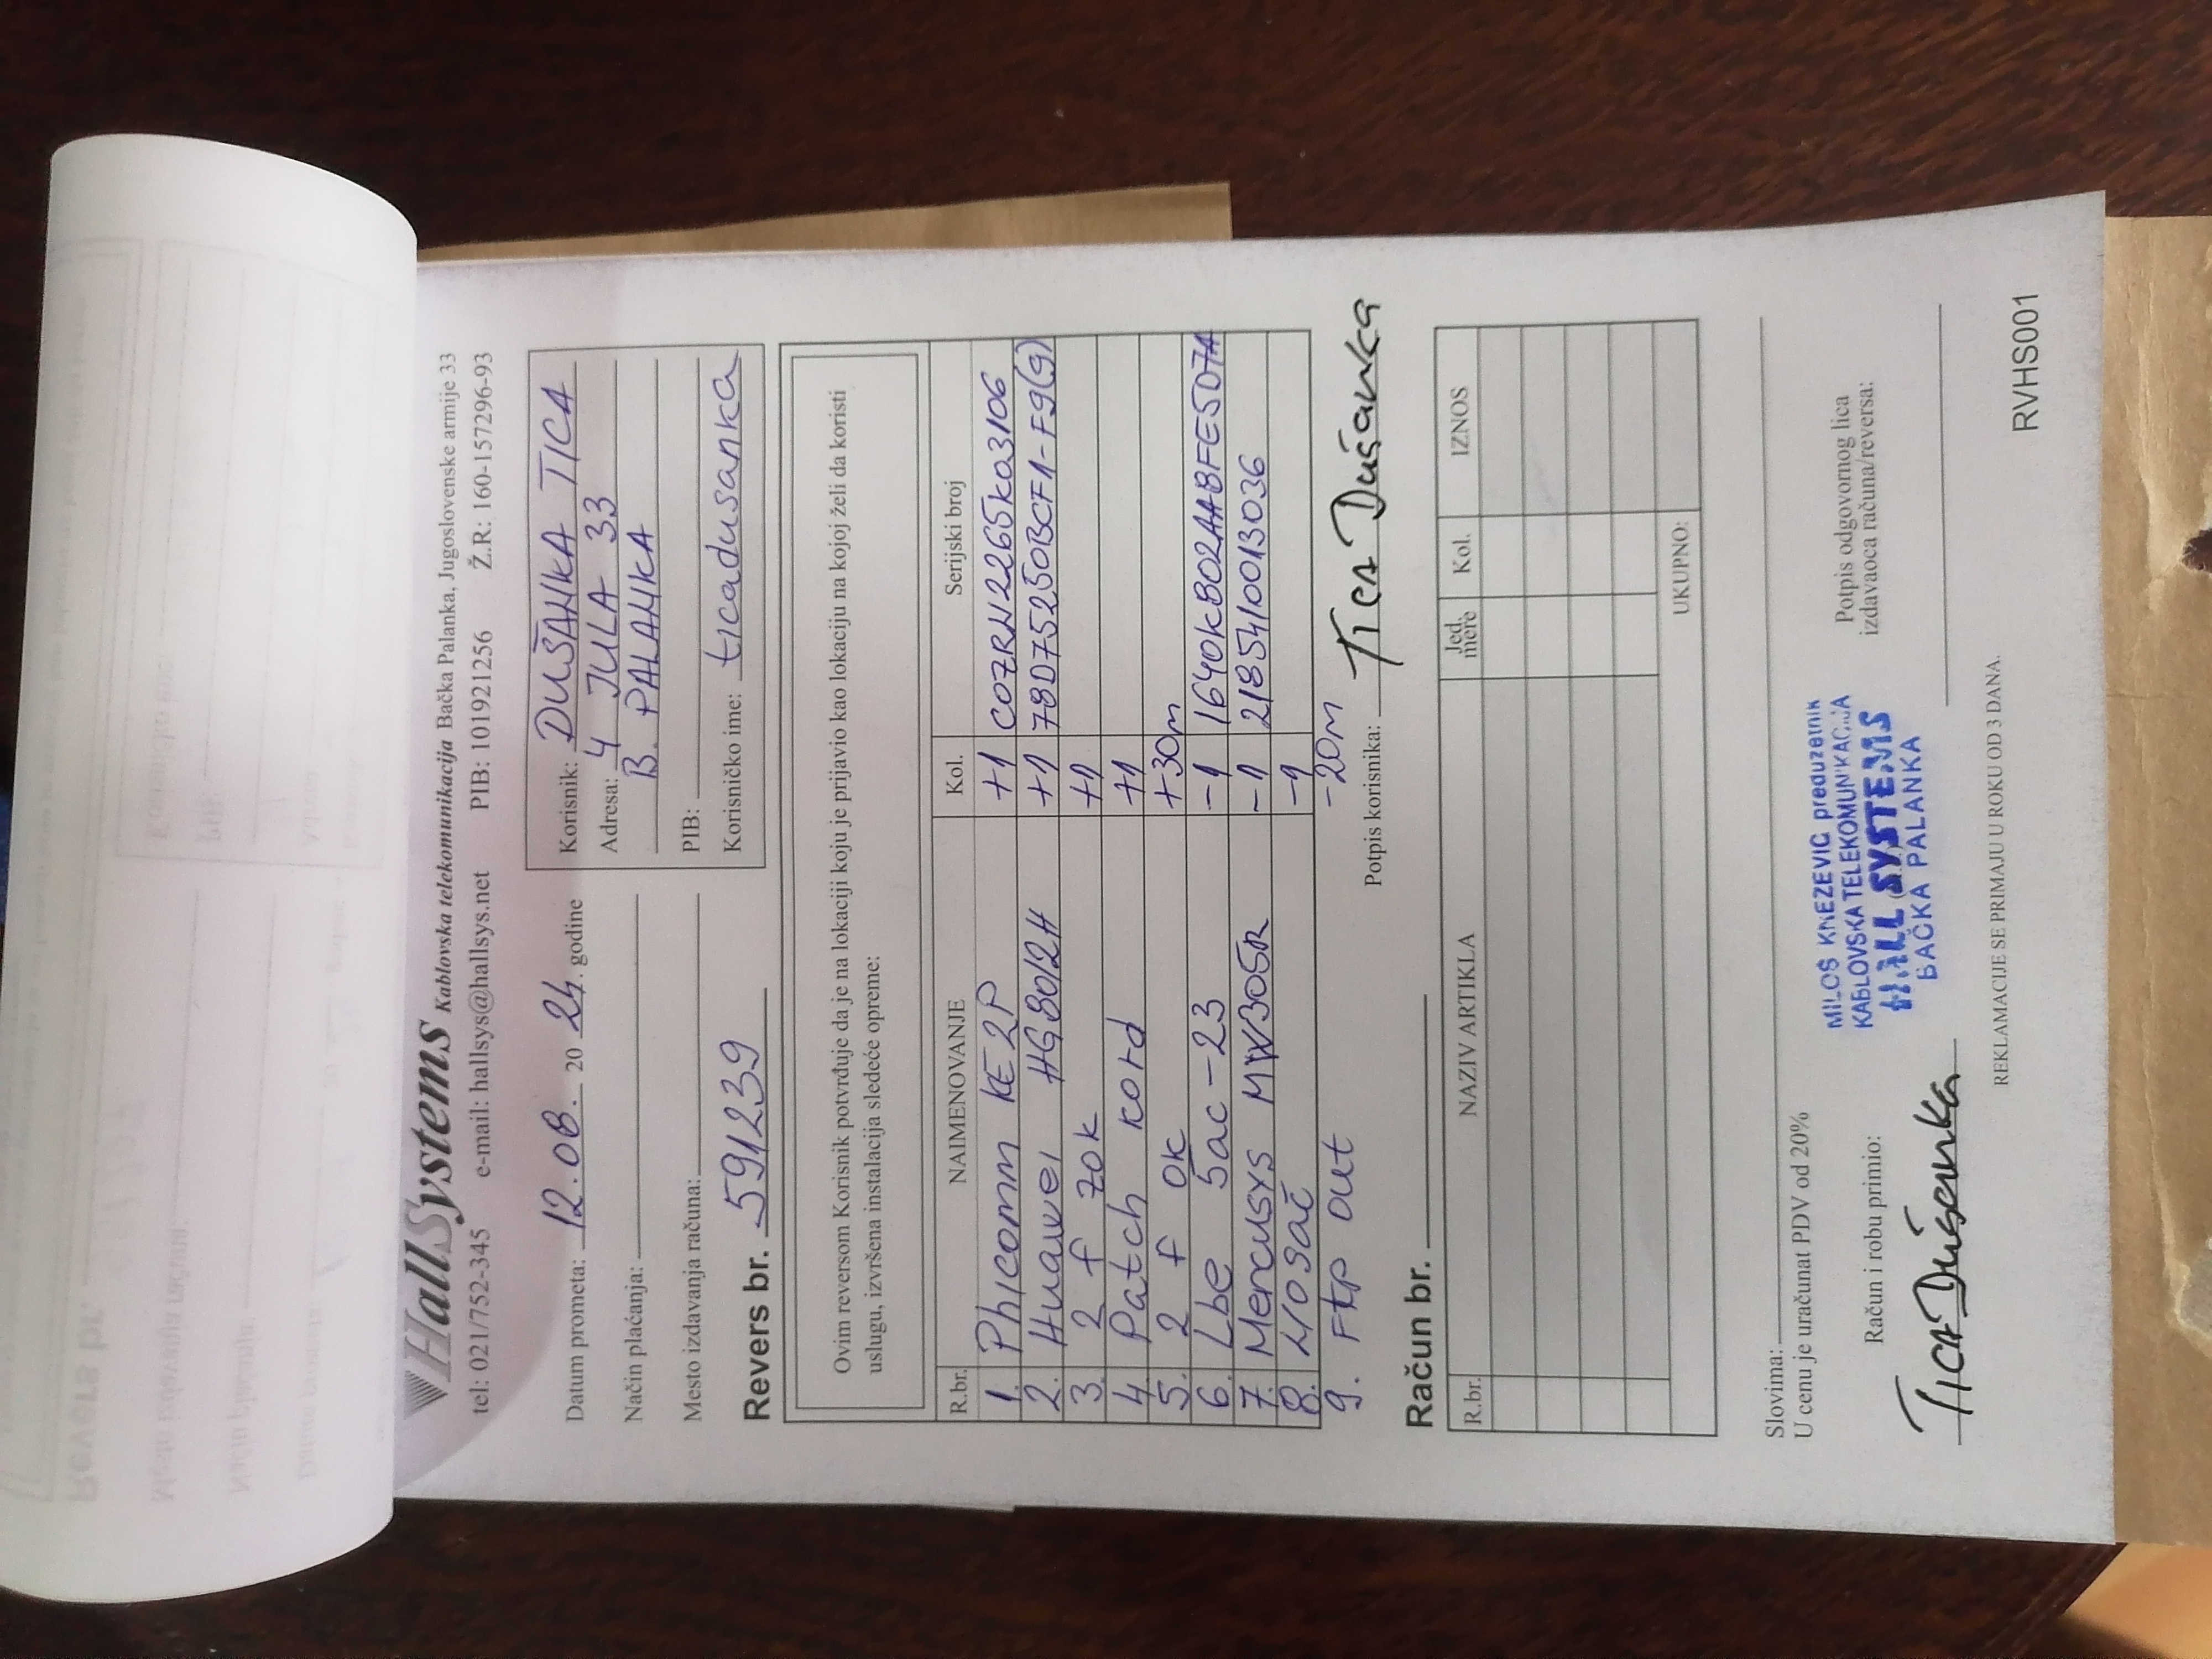 HallSystems Kablovska telekomunikacija Bačka Palanka, Jugoslovenske armije 33
tel: 021/752-345 e-mail: hallsys@hallsys.net PIB: 101921256 Ž.R: 160-157296-93
Datum prometa: 12.08. 20 24. godine
Način plaćanja:
Mesto izdavanja računa:
Revers br. 591239
Korisnik: DUŠANKA TICA
Adresa: 4 JULA 33
B. PALANKA
PIB:
Korisničko ime: ticadusanka
Ovim reversom Korisnik potvrđuje da je na lokaciji koju je prijavio kao lokaciju na kojoj želi da koristi
uslugu, izvršena instalacija sledeće opreme:
R.br. NAIMENOVANJE Kol. Serijski broj
1. Phicomm KE 2P +1 COZRN2265K03106
2. Huawei HG8012H +1 78D75250BCF1-F9(g)
3. 2 f zok +1
4. Patch kord +1
5. 2 f ok +30m
6. Lbe 5ac-23 -1 1640KB02AABFE5D7A
7. Mercusys MW305R -1 2185410013036
8. Nosač -1
9. Ftp out -20m
Potpis korisnika: Tica Dušanka
Račun br.
R.br. NAZIV ARTIKLA Jed. mere Kol. IZNOS
UKUPNO:
Slovima:
U cenu je uračunat PDV od 20%
Račun i robu primio:
Tica Dušanka
MILOŠ KNEZEVIĆ preduzetnik
KABLOVSKA TELEKOMUNIKACIJA
HALL SYSTEMS
BAČKA PALANKA
Potpis odgovornog lica
izdavaoca računa/reversa:
REKLAMACIJE SE PRIMAJU U ROKU OD 3 DANA.
RVHS001